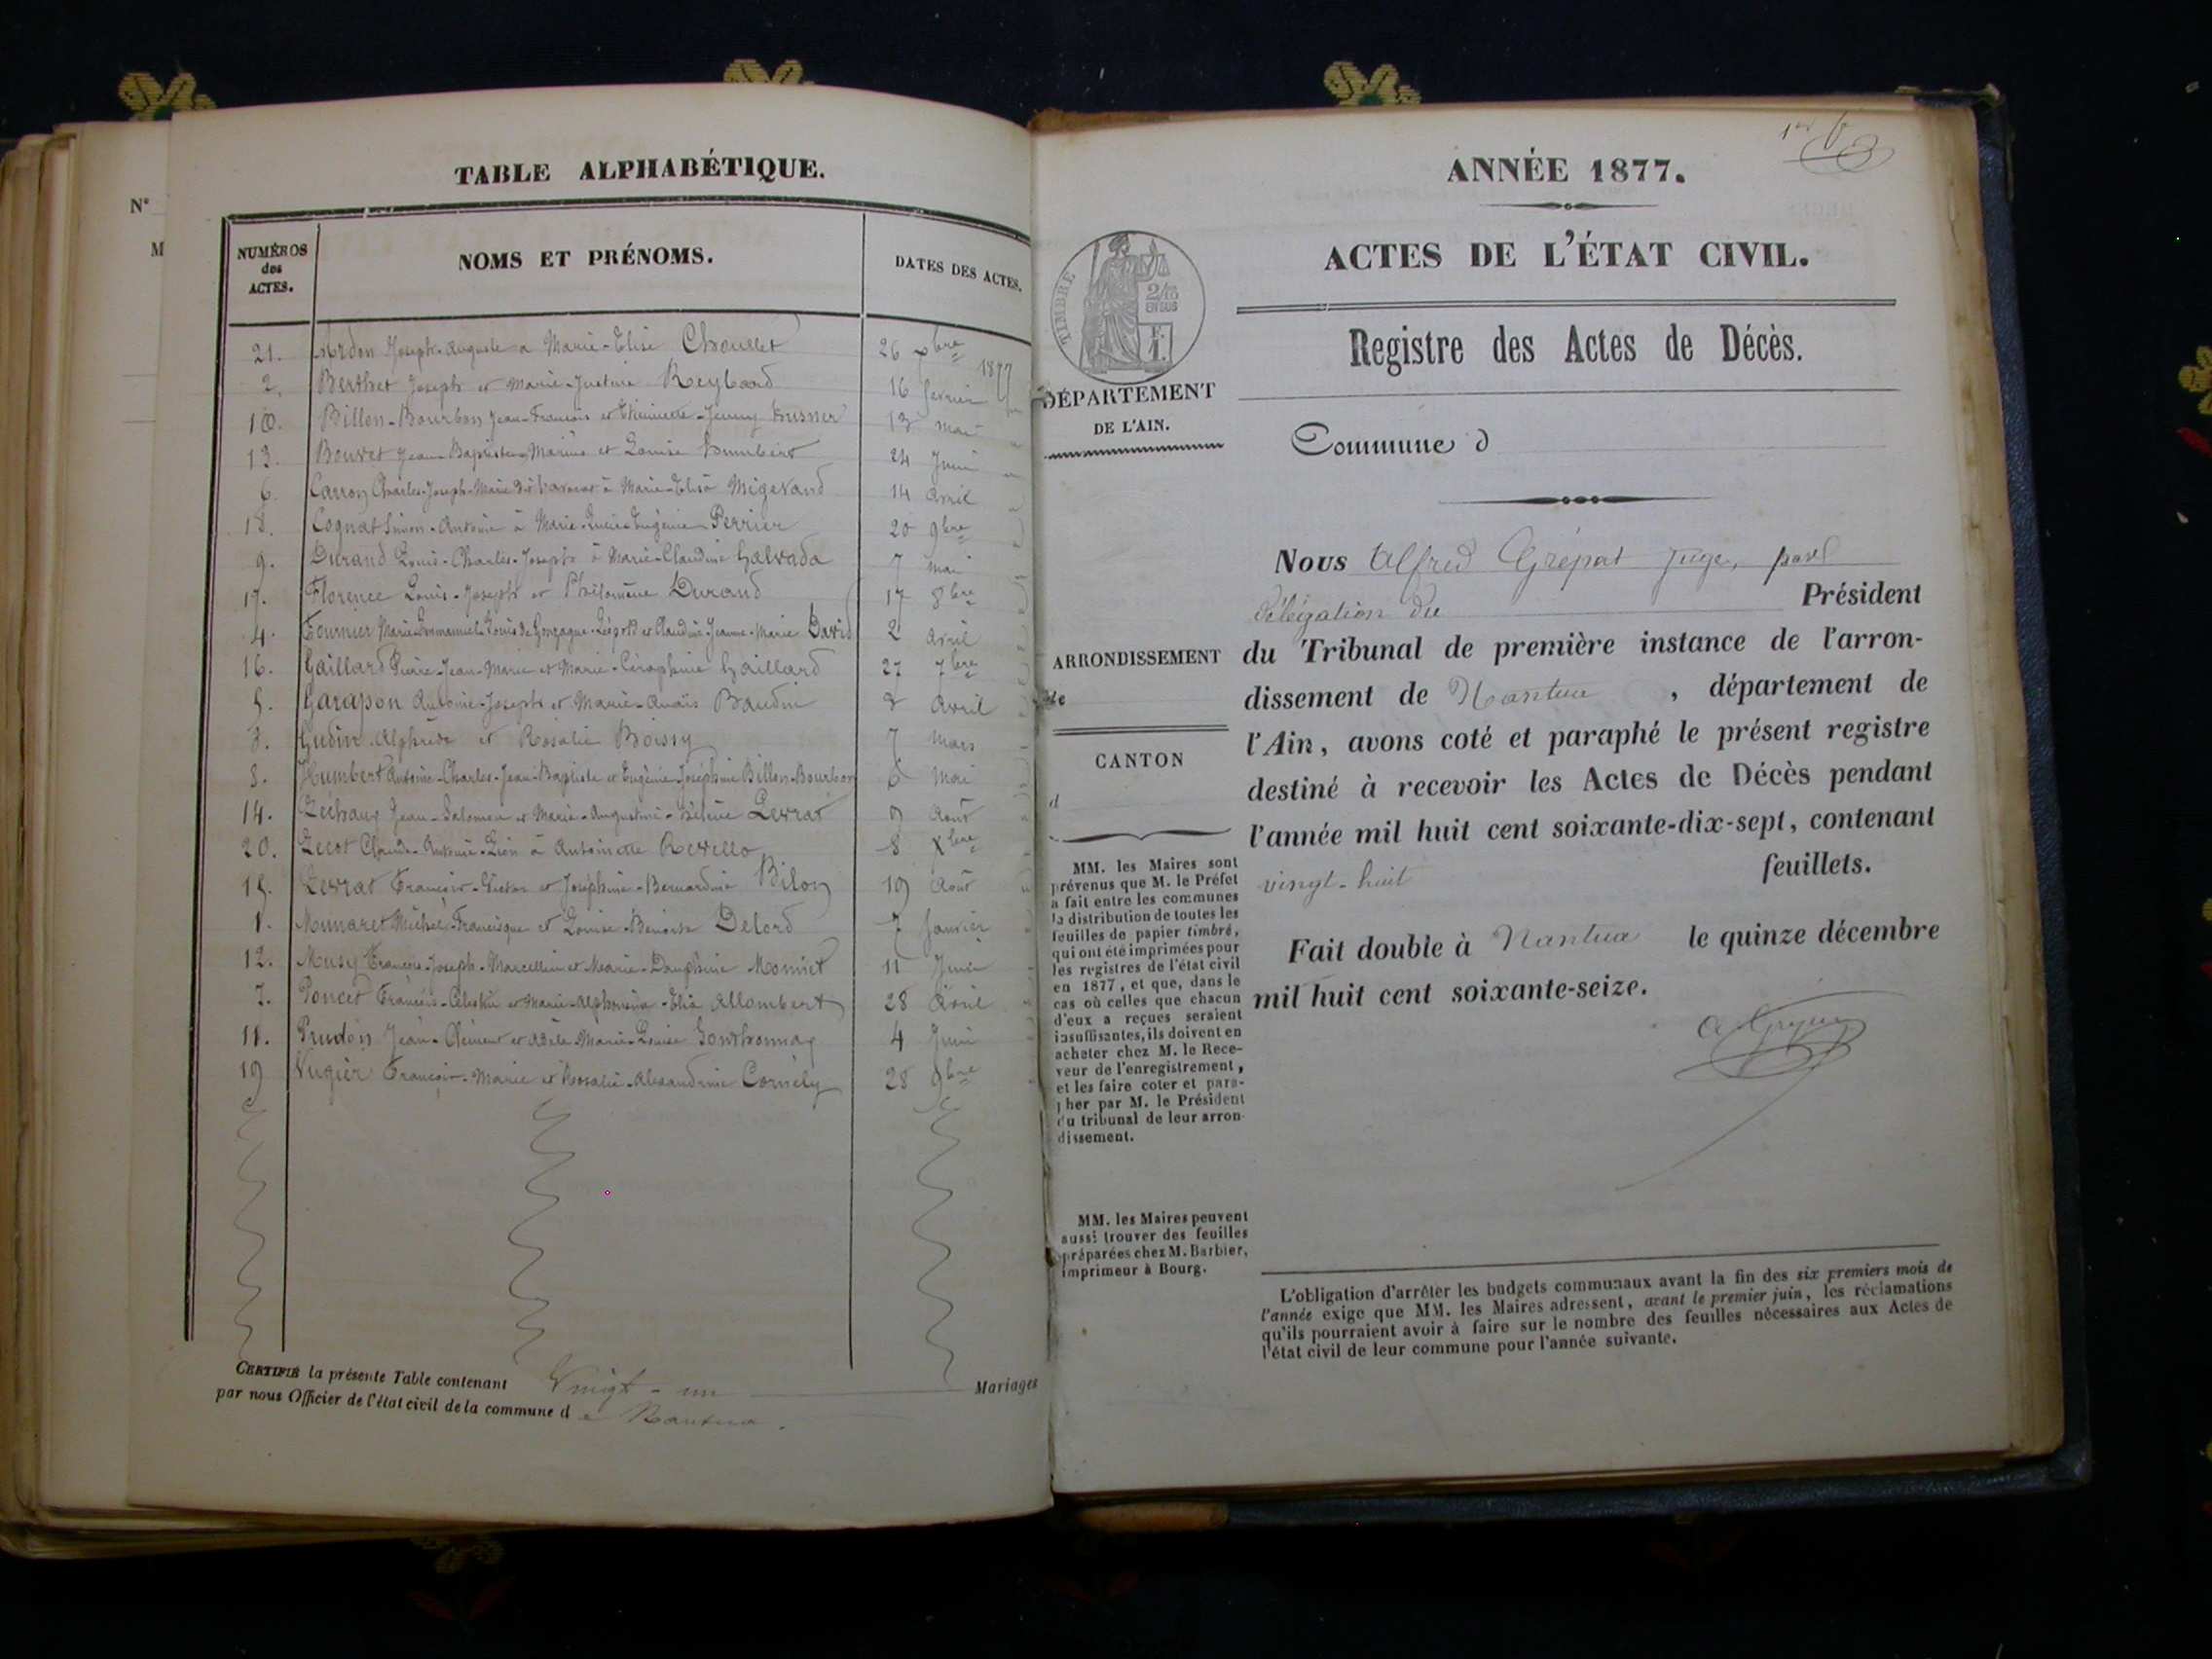 N°
M
TABLE ALPHABÉTIQUE.
NUMÉROS
des
ACTES.
NOMS ET PRÉNOMS.
DATES DES ACTES.
21. Ardon Joseph-Auguste a Marie-Elise Chevallet 26 xbre 1877
2. Berthet Joseph et Marie-Justine Reybard 16 février
10. Billon-Bourbon Jean-François et Etiennette-Jenny 13 mai
13. Bouvet Jean-Baptiste-Marius et Louise Humbert 24 Juin
6. Carron Charles-Joseph-Marie à Marie-Elisa Migevand 14 avril
18. Cognat Simon-Antoine à Marie-Lucie-Eugénie Perrier 20 9bre
9. Durand Louis-Charles-Joseph à Marie-Claudine Galvada 7 mai
17. Florence Louis-Joseph et Philomène Durand 17 8bre
4. Fournier Marie-Emmanuel-Louis de Gonzague-Léopold et Claudine-Jeanne-Marie David 2 avril
16. Gaillard Pierre-Jean-Marie et Marie-Séraphine Gaillard 27 7bre
5. Garapon Antoine-Joseph et Marie-Anaïs Baudin 8 Avril
3. Gudin Alphrède et Rosalie Boissy 7 Mars
8. Humbert Antoine-Charles-Jean-Baptiste et Eugénie-Joséphine Billon-Bourbon 6 Mai
14. Léchaux Jean-Salomon et Marie-Augustine-Hélène Levrat 9 Août
20. Lecot Claude-Antoine-Léon à Antoinette Revello 8 Xbre
15. Levrat François-Gustave et Joséphine-Bernardine Bilon 19 Août
1. Munaret Michel-Francisque et Louise-Benoite Delord 7 Janvier
12. Musy François-Joseph-Marcellin et Marie-Dauphine Monnet 11 Juin
7. Poncet François-Célestin et Marie-Alphonsine-Elisa Allombert 28 Avril
11. Prudon Jean-Clément et Adèle-Marie-Louise Gouthonnay 4 Juin
19 Vugier François-Marie et Rosalie-Alexandrine Cornély 28 9bre
CERTIFIÉ la présente Table contenant Vingt-un Mariages
par nous Officier de l'état civil de la commune de Nantua.
1er
ANNÉE 1877.
ACTES DE L'ÉTAT CIVIL.
Registre des Actes de Décès.
TIMBRE
2/10
EN SUS
F.
1.
DÉPARTEMENT
DE L'AIN.
Commune d
Nous Alfred Grépat juge, par
délégation du Président
du Tribunal de première instance de l'arron-
dissement de Nantua, département de
l'Ain, avons coté et paraphé le présent registre
destiné à recevoir les Actes de Décès pendant
l'année mil huit cent soixante-dix-sept, contenant
vingt-huit feuillets.
Fait double à Nantua le quinze décembre
mil huit cent soixante-seize.
ARRONDISSEMENT
de
CANTON
d
MM. les Maires sont
prévenus que M. le Préfet
a fait entre les communes
la distribution de toutes les
feuilles de papier timbré,
qui ont été imprimées pour
les registres de l'état civil
en 1877, et que, dans le
cas où celles que chacun
d'eux a reçues seraient
insuffisantes, ils doivent en
acheter chez M. le Rece-
veur de l'enregistrement,
et les faire coter et para-
pher par M. le Président
du tribunal de leur arron-
dissement.
MM. les Maires peuvent
aussi trouver des feuilles
préparées chez M. Barbier,
imprimeur à Bourg.
L'obligation d'arrêter les budgets communaux avant la fin des six premiers mois de
l'année exige que MM. les Maires adressent, avant le premier juin, les réclamations
qu'ils pourraient avoir à faire sur le nombre des feuilles nécessaires aux Actes de
l'état civil de leur commune pour l'année suivante.